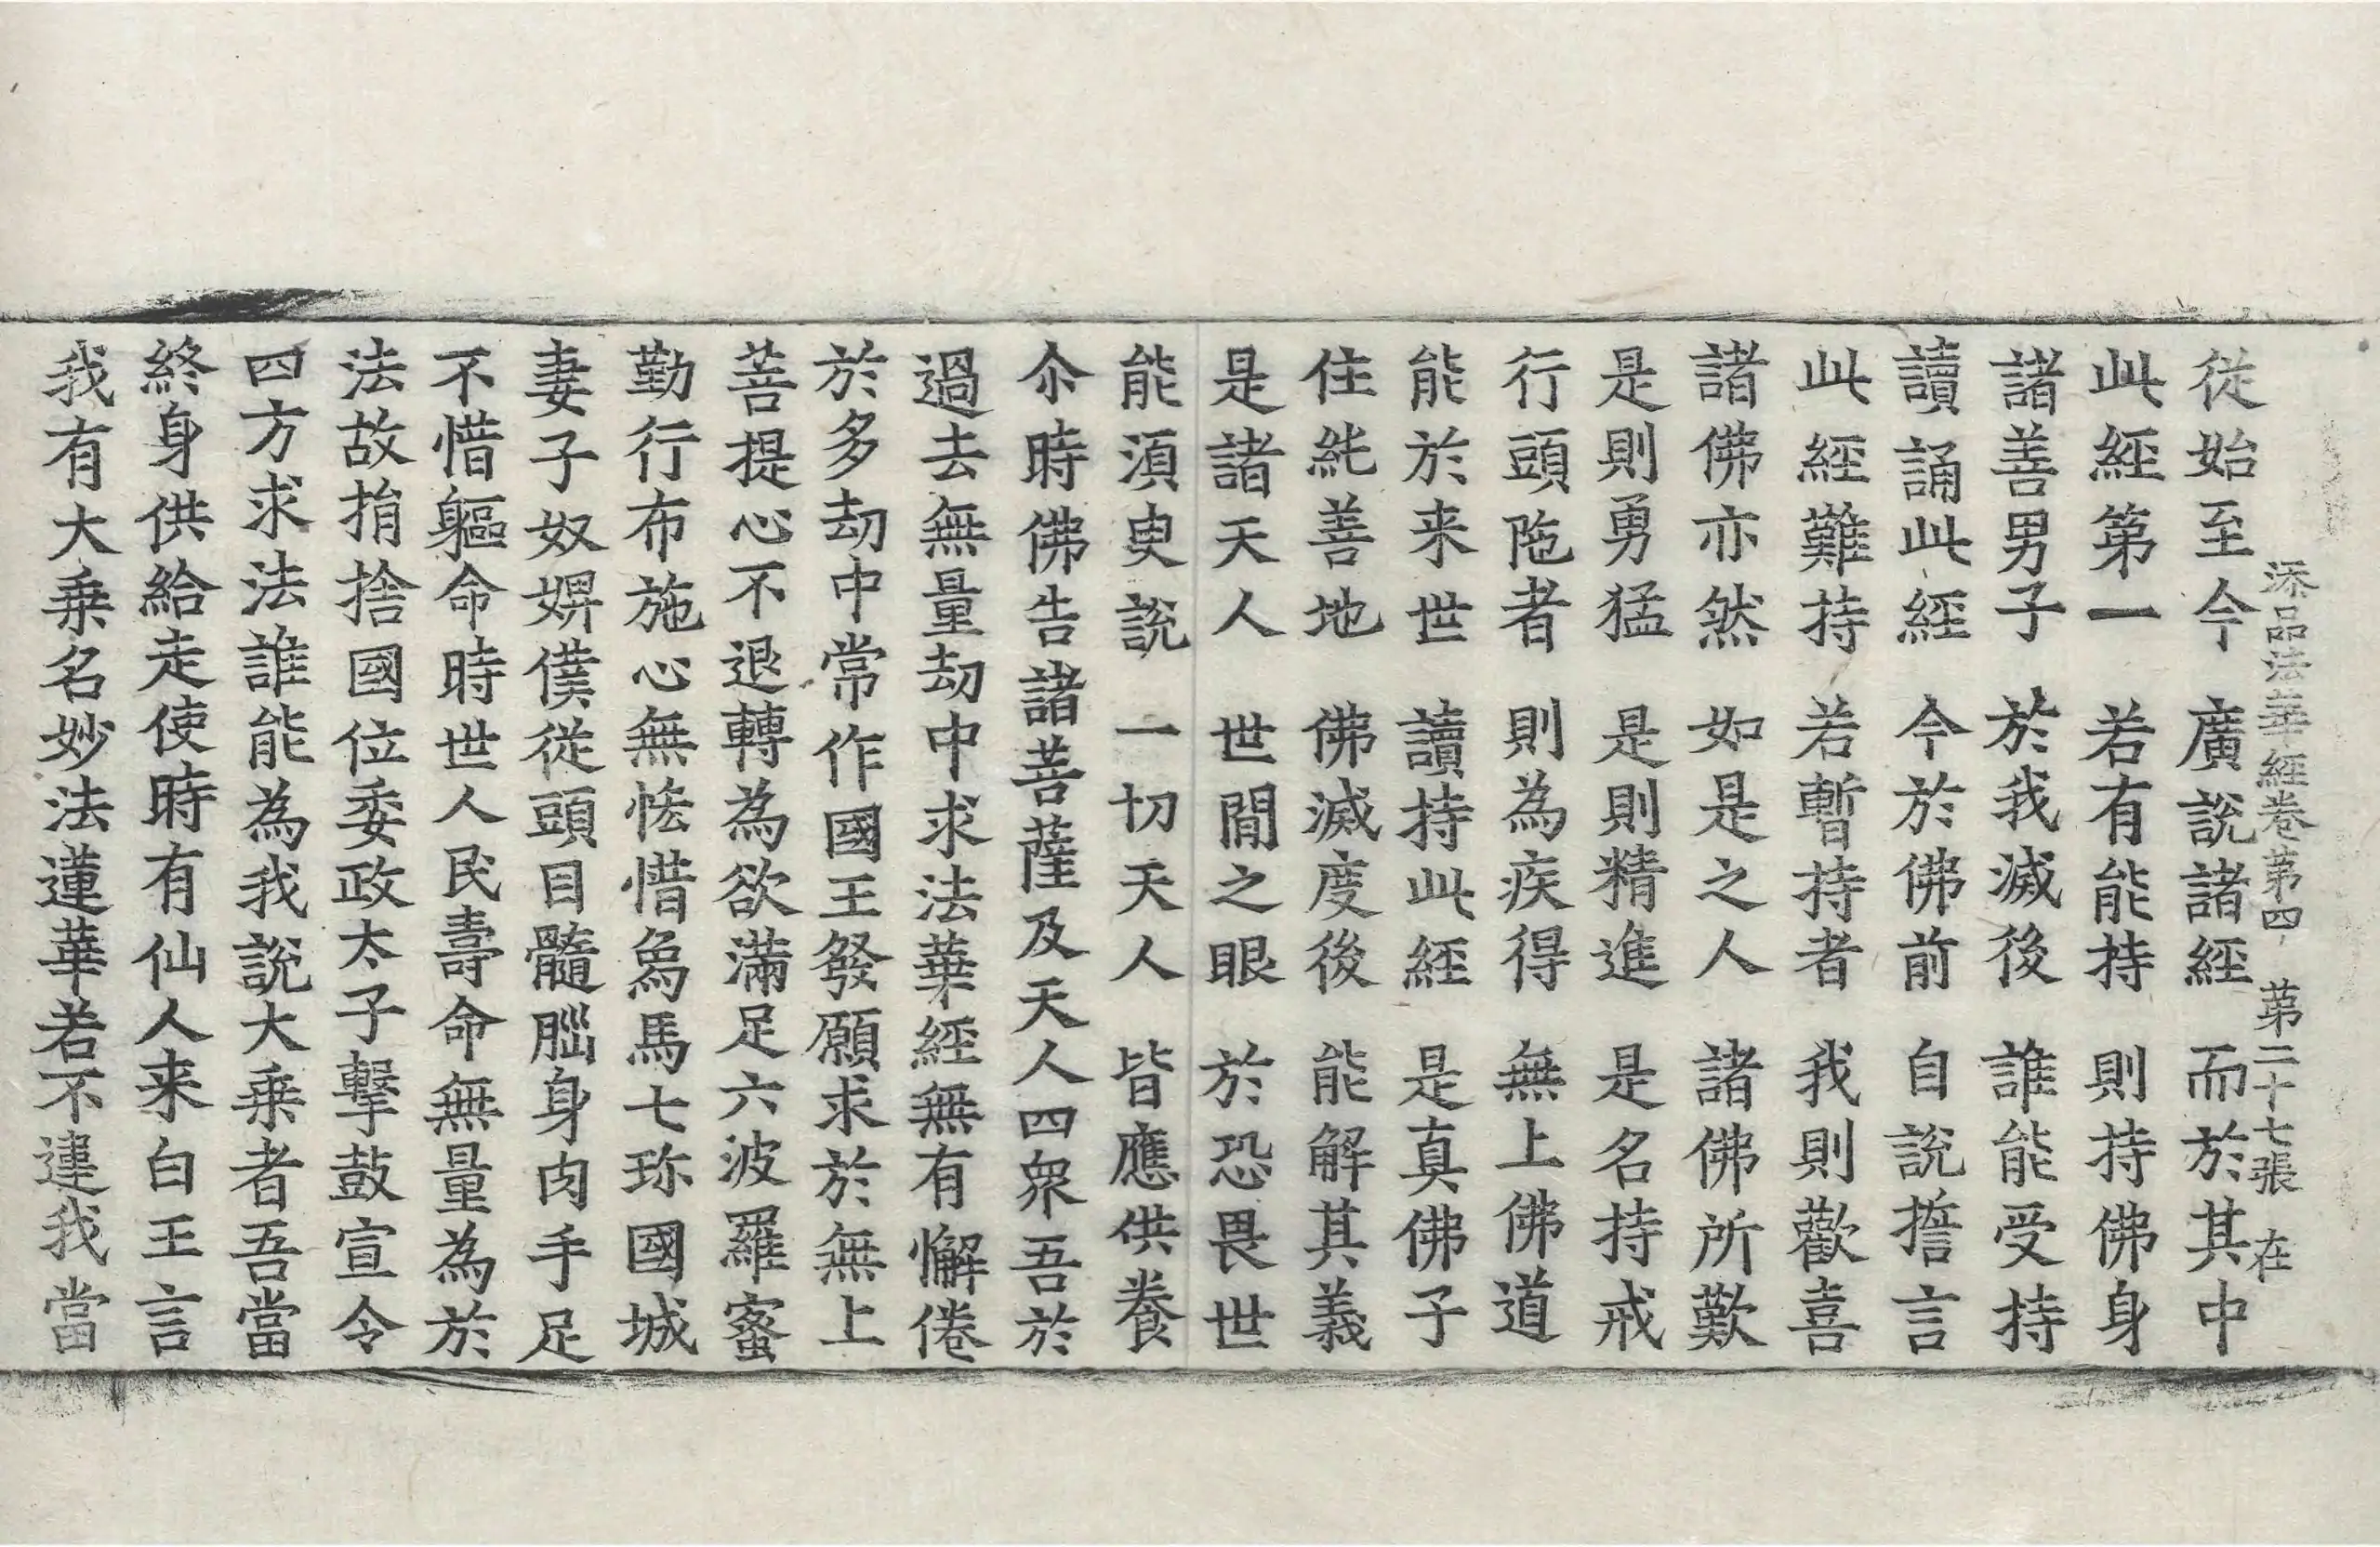 添品法華經卷第四 第二十七張 在
從始至今 廣說諸經 而於其中
此經第一 若有能持 則持佛身
諸善男子 於我滅後 誰能受持
讀誦此經 今於佛前 自說誓言
此經難持 若暫持者 我則歡喜
諸佛亦然 如是之人 諸佛所歎
是則勇猛 是則精進 是名持戒
行頭陁者 則為疾得 無上佛道
能於来世 讀持此經 是真佛子
住純善地 佛滅度後 能解其義
是諸天人 世閒之眼 於恐畏世
能湏臾說 一切天人 皆應供養
尒時佛告諸菩薩及天人四衆吾於
過去無量劫中求法華經無有懈倦
於多劫中常作國王發願求於無上
菩提心不退轉為欲滿足六波羅蜜
勤行布施心無恡惜象馬七珎國城
妻子奴婢僕從頭目髓腦身肉手足
不惜軀命時世人民壽命無量為於
法故捐捨國位委政太子擊鼓宣令
四方求法誰能為我說大乗者吾當
終身供給走使時有仙人来白王言
我有大乗名妙法蓮華若不違我當